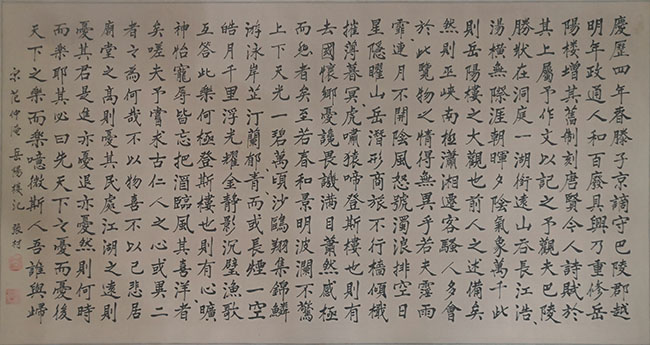 慶歷四年春滕子京謫守巴陵郡越
明年政通人和百廢具興乃重修岳
陽樓增其舊制刻唐賢今人詩賦於
其上屬予作文以記之予觀夫巴陵
勝狀在洞庭一湖銜遠山吞長江浩
湯橫無際涯朝暉夕陰氣象萬千此
則岳陽樓之大觀也前人之述備矣
然則巫峽南極瀟湘遷客騷人多會
於此覽物之情得無異乎若夫霪雨
霏連月不開陰風怒號濁浪排空日
星隱曜山岳潛形商旅不行檣傾檝
摧薄暮冥虎嘯猿啼登斯樓也則有
去國懷鄉憂讒畏譏滿目蕭然感極
而悲者矣至若春和景明波瀾不驚
上下天光一碧萬頃沙鷗翔集錦鱗
游泳岸芷汀蘭郁青而或長煙一空
皓月千里浮光耀金靜影沉璧漁歌
互答此樂何極登斯樓也則有心曠
神怡寵辱皆忘把酒臨風其喜洋者
矣嗟夫予嘗求古仁人之心或異二
者之為何哉不以物喜不以己悲居
廟堂之高則憂其民處江湖之遠則
憂其君是進亦憂退亦憂然則何時
而樂耶其必曰先天下之憂而憂後
天下之樂而樂噫微斯人吾誰與歸
宋范仲淹 岳陽樓記 張